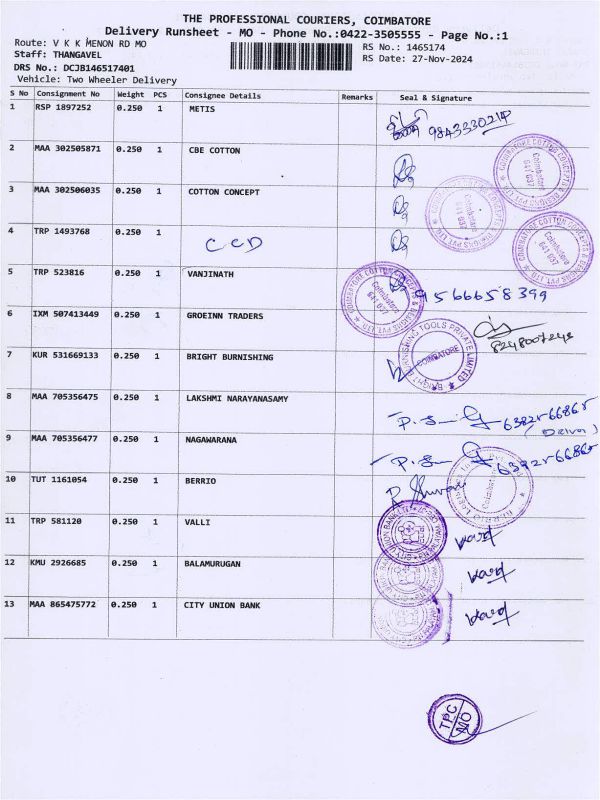 THE PROFESSIONAL COURIERS, COIMBATORE
Delivery Runsheet - MO - Phone No.:0422-3505555 - Page No.:1
Route: V K K MENON RD MO
Staff: THANGAVEL
RS No.: 1465174
DRS No.: DCJB146517401
RS Date: 27-Nov-2024
Vehicle: Two Wheeler Delivery
S No Consignment No Weight PCS Consignee Details Remarks Seal & Signature
1 RSP 1897252 0.250 1 METIS 9843330214
2 MAA 302505871 0.250 1 CBE COTTON
3 MAA 302506035 0.250 1 COTTON CONCEPT
4 TRP 1493768 0.250 1 CCD
5 TRP 523816 0.250 1 VANJINATH 9566658399
6 IXM 507413449 0.250 1 GROEINN TRADERS
7 KUR 531669133 0.250 1 BRIGHT BURNISHING
8 MAA 705356475 0.250 1 LAKSHMI NARAYANASAMY
9 MAA 705356477 0.250 1 NAGAWARANA
10 TUT 1161054 0.250 1 BERRIO
11 TRP 581120 0.250 1 VALLI
12 KMU 2926685 0.250 1 BALAMURUGAN
13 MAA 865475772 0.250 1 CITY UNION BANK
COIMBATORE COTTON CONCEPTS & DESIGNS PVT LTD
Coimbatore
641 037
COIMBATORE
TPC
MO